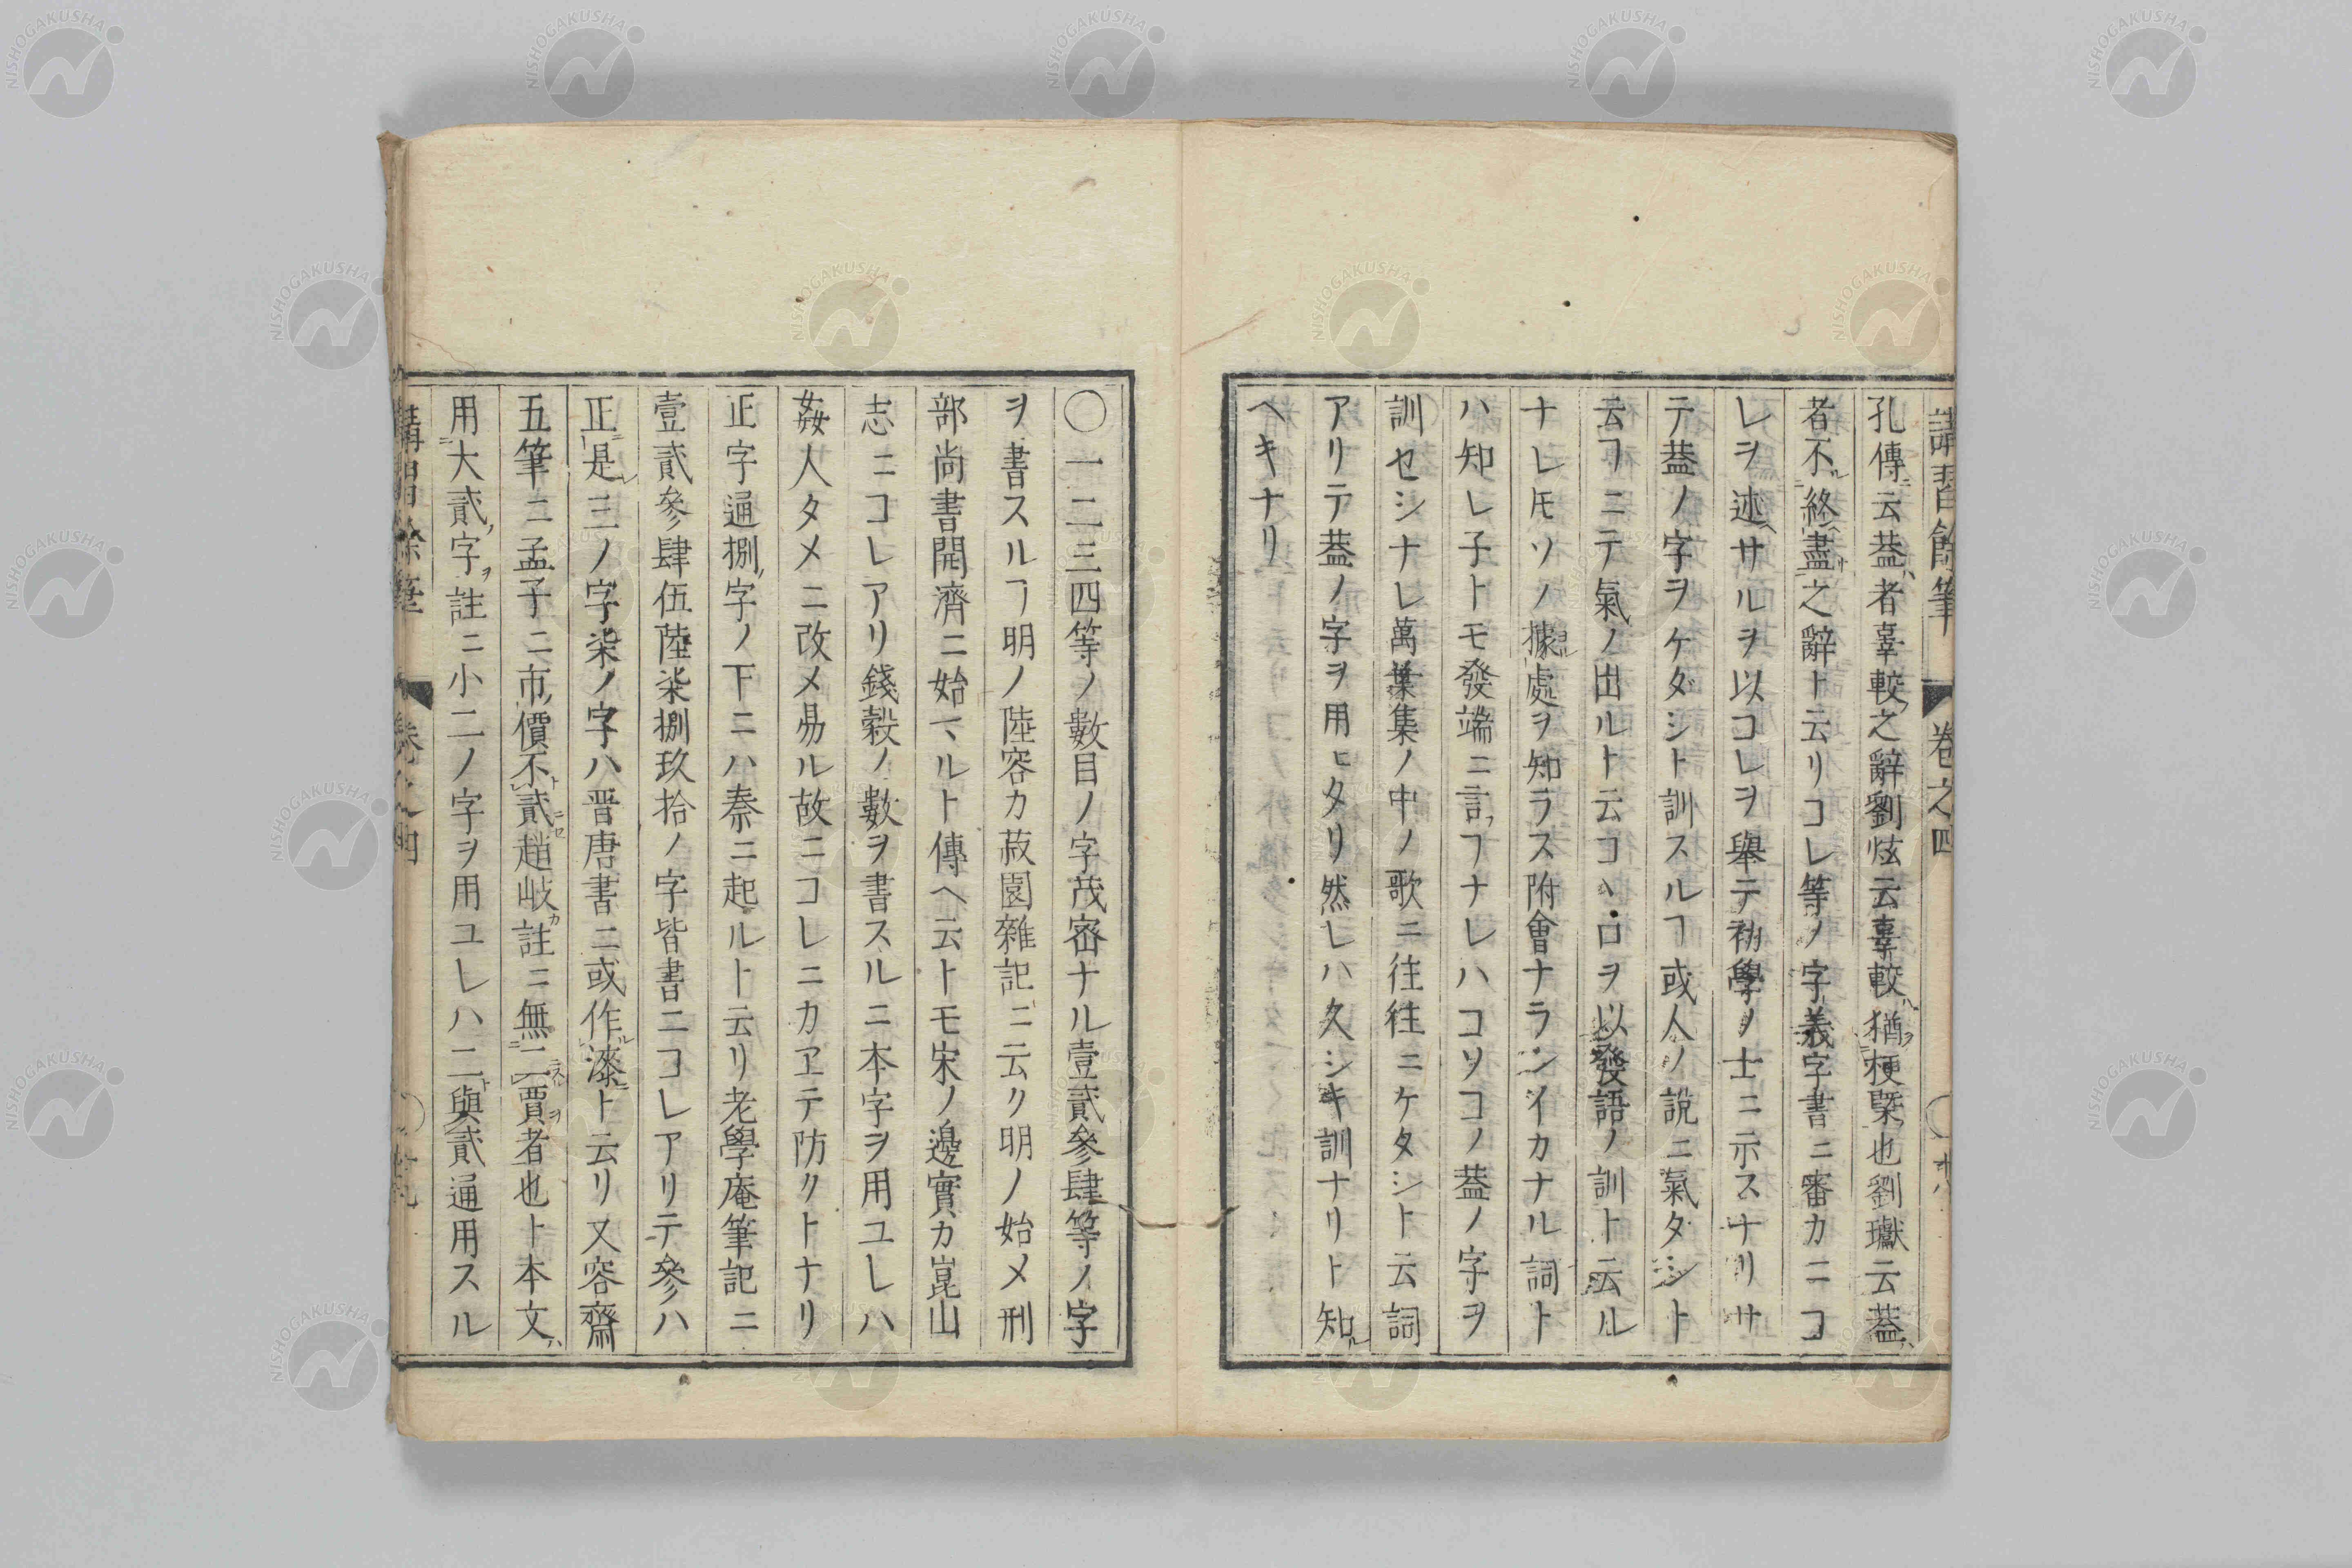 講習餘筆 卷之四
孔傳云葢者辜較之辭劉炫云辜較猶梗槩也劉瓛云葢
者不終盡之辭ト云リコレ等ノ字義字書ニ審カニコ
レヲ述サルヲ以コレヲ舉テ初學ノ士ニ示スナリサ
テ葢ノ字ヲケダシト訓スルヿ或人ノ說ニ氣タシト
云ヿニテ氣ノ出ルト云コヽロヲ以發語ノ訓ト云ル
ナレ𪜈ソノ據處ヲ知ラス附會ナランイカナル詞ト
ハ知レ子トモ發端ニ言フヿナレハコソコノ葢ノ字ヲ
訓セシナレ萬葉集ノ中ノ歌ニ往往ニケタシト云詞
アリテ葢ノ字ヲ用ヒタリ然レハ久シキ訓ナリト知ル
ヘキナリ
〇一二三四等ノ數目ノ字茂密ナル壹貳參肆等ノ字
ヲ書スルヿ明ノ陸容カ菽園雜記ニ云ク明ノ始メ刑
部尚書開濟ニ始マルト傳ヘ云トモ宋ノ邊實カ崑山
志ニコレアリ錢穀ノ數ヲ書スルニ本字ヲ用ユレハ
姦人タメニ改メ易ル故ニコレニカヱテ防クトナリ
正字通捌字ノ下ニハ秦ニ起ルト云リ老學庵筆記ニ
壹貳參肆伍陸柒捌玖拾ノ字皆書ニコレアリテ參ハ
正是三ノ字柒ノ字ハ晋唐書ニ或作漆ト云リ又容齋
五筆ニ孟子ニ市價不貳趙岐註ニ無二賈者也ト本文ハ
用大貳字註ニ小二ノ字ヲ用ユレハ二與貳通用スル
講習餘筆 卷之四
NISHOGAKUSHA